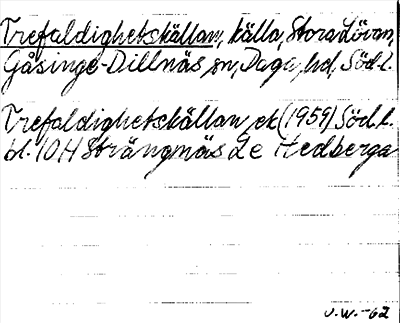 Trefaldighetskällan, källa, Stora Lövan,
Gåsinge-Dillnäs sn, Daga hd, Söd. l.
Trefaldighetskällan ek (1959) Söd. l.
bl. 10H Strängnäs 2e Hedberga
J.W.-62